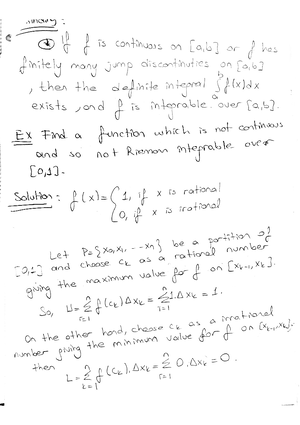 ⊛ If f is continuous on [a,b] or f has
finitely many jump discontinuities on [a,b]
, then the definite integral ∫ₐᵇ f(x)dx
exists, and f is integrable over [a,b].
EX Find a function which is not continuous
and so not Rieman integrable over
[0,1].
Solution: f(x) = { 1, if x is rational
0, if x is irational
Let P={x₀,x₁, ---xₙ} be a partition of
[0,1] and choose cₖ as a rational number
giving the maximum value for f on [xₖ₋₁, xₖ].
So, U = Σ f(cₖ) Δxₖ = Σ 1.Δxₖ = 1.
On the other hand, choose cₖ as a irrational
number giving the minimum value for f on [xₖ₋₁,xₖ].
then L = Σ f(cₖ).Δxₖ = Σ 0.Δxₖ = 0.